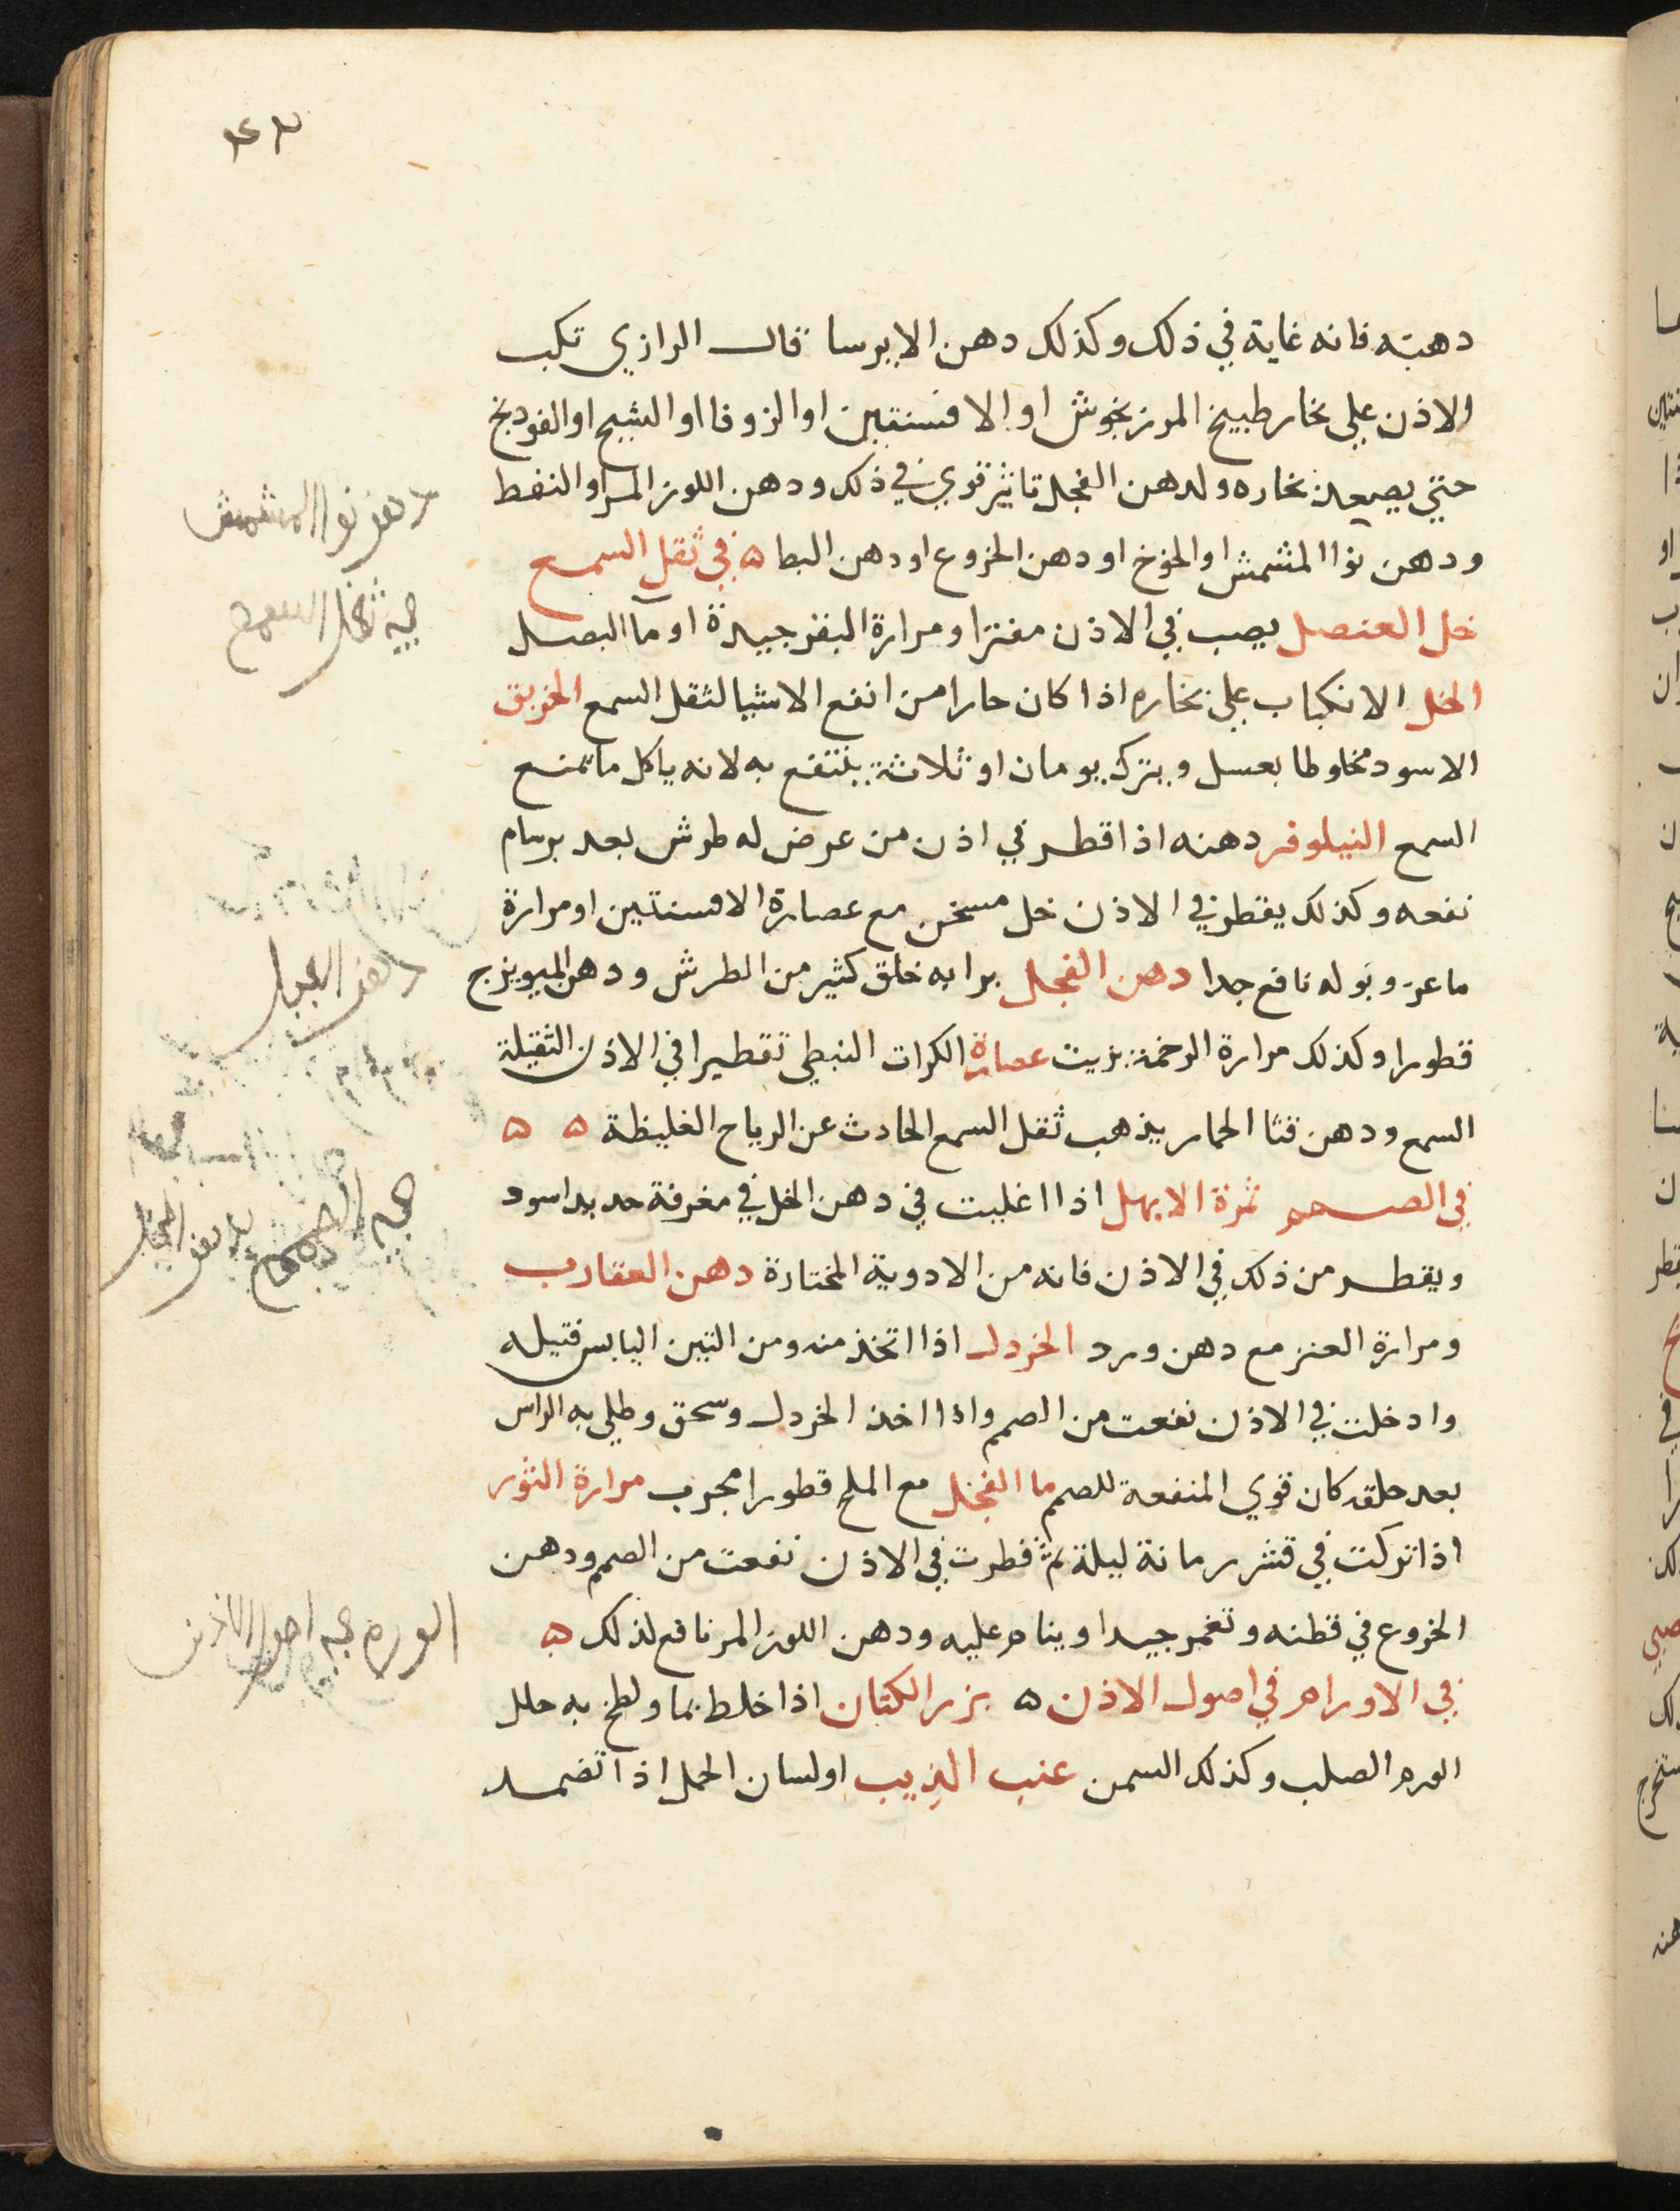 دهنه فانه غاية في ذلك وكذلك دهن الايرسا قال الرازي تكب
الاذن علي بخار طبيخ المرزنجوش او الافسنتين او الزوفا او الشيح او الفودنج
حتي يصعد بخاره ولدهن الفجل تاثير قوي في ذلك ودهن اللوز المر او النفط
ودهن نوا المشمش او الخوخ او دهن الخروع او دهن البط ه في ثقل السمع
خل العنصل يصب في الاذن مفترا ومرارة البقر جيدة او مآ البصل
الخل الانكباب علي بخاره اذا كان حارا من انفع الاشيا لثقل السمع الخربق
الاسود مخلوطا بعسل ويترك يومان او ثلاثة ينتفع به لانه ياكل ما تمنع
السمع النيلوفر دهنه اذا قطر في اذن من عرض له طرش بعد برسام
نفعه وكذلك يقطر في الاذن خل مسخن مع عصارة الافسنتين او مرارة
ماعز وبوله نافع جدا دهن الفجل برا به خلق كثير من الطرش ودهن الميويزج
قطورا وكذلك مرارة الرخمة بزيت عصارة الكرات النبطي تقطيرا في الاذن الثقيلة
السمع ودهن قثا الحمار يذهب ثقل السمع الحادث عن الرياح الغليظة ه ه
في الصمم ثمرة الابهل اذا اغليت في دهن الخل في مغرفة حديد اسود
ويقطر من ذلك في الاذن فانه من الادوية المختارة دهن العقارب
ومرارة العنز مع دهن ورد الخردل اذا اتخذ منه ومن التين اليابس فتيله
وادخلت في الاذن نفعت من الصمم واذا اخذ الخردل وسحق وطلي به الراس
بعد حلقه كان قوي المنفعة للصمم ما الفجل مع الملح قطورا مجرب مرارة الثور
اذا تركت في قشر رمانة ليلة ثم قطرت في الاذن نفعت من الصمم ودهن
الخروع في قطنه وتغمر جيدا وينام عليه ودهن اللوز المر نافع لذلك ه
في الاورام في اصول الاذن ه بزر الكتان اذا خلط بما ولطخ به حلل
الورم الصلب وكذلك السمن عنب الذيب او لسان الحمل اذا تضمد
دهن نوا المشمش
في ثقل السمع
دهن الفجل
الورم في اصول الاذن